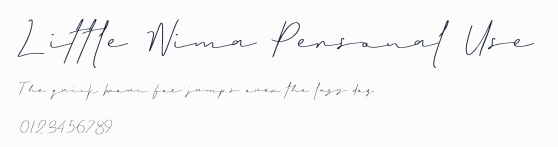 Little Nima Personal Use
The quick brown fox jumps over the lazy dog
0123456789